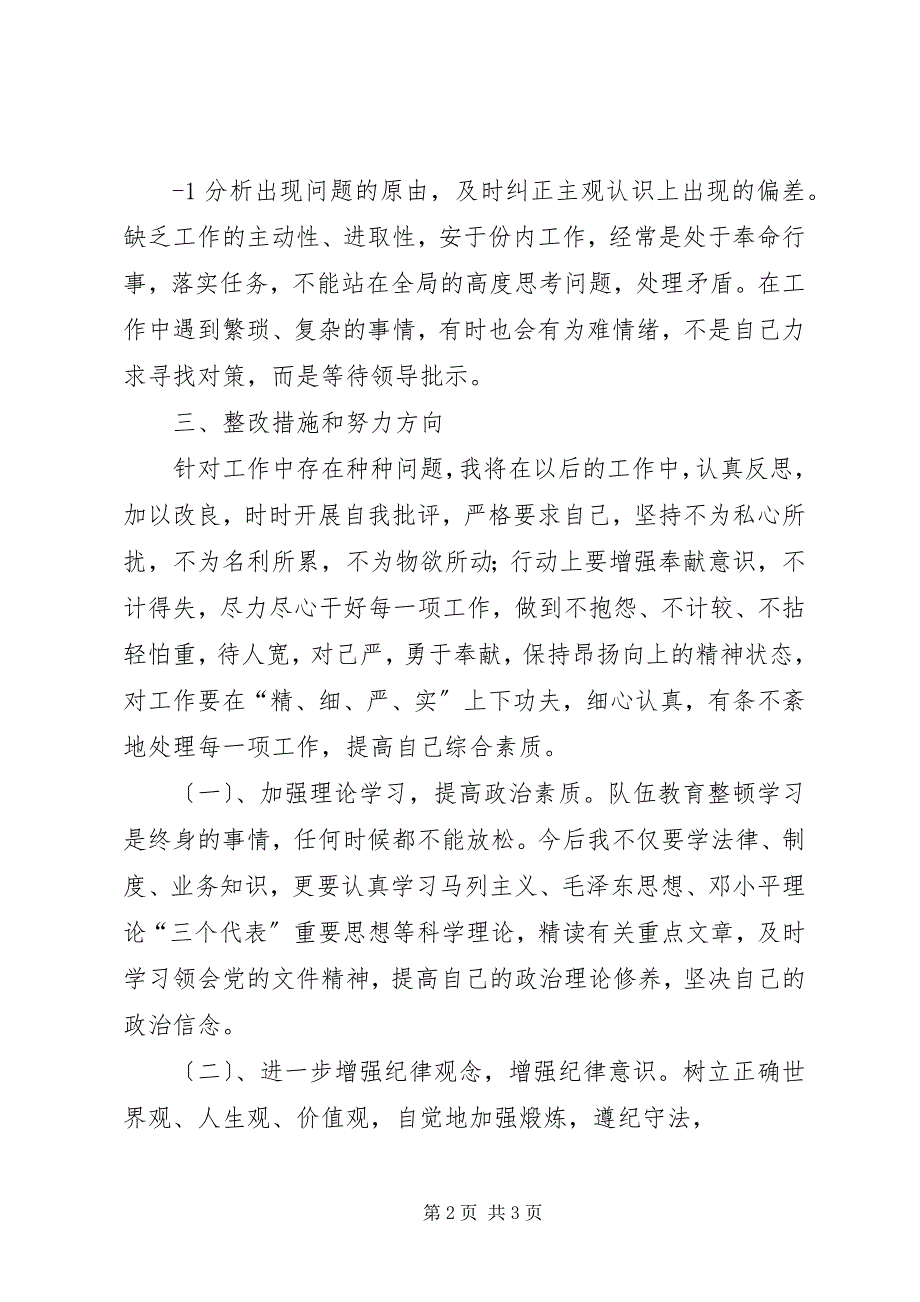 -1 分析出现问题的原由，及时纠正主观认识上出现的偏差。
缺乏工作的主动性、进取性，安于份内工作，经常是处于奉命行
事，落实任务，不能站在全局的高度思考问题，处理矛盾。在工
作中遇到繁琐、复杂的事情，有时也会有为难情绪，不是自己力
求寻找对策，而是等待领导批示。
三、整改措施和努力方向
针对工作中存在种种问题，我将在以后的工作中，认真反思，
加以改良，时时开展自我批评，严格要求自己，坚持不为私心所
扰，不为名利所累，不为物欲所动；行动上要增强奉献意识，不
计得失，尽力尽心干好每一项工作，做到不抱怨、不计较、不拈
轻怕重，待人宽，对己严，勇于奉献，保持昂扬向上的精神状态，
对工作要在“精、细、严、实〞上下功夫，细心认真，有条不紊
地处理每一项工作，提高自己综合素质。
〔一〕、加强理论学习，提高政治素质。队伍教育整顿学习
是终身的事情，任何时候都不能放松。今后我不仅要学法律、制
度、业务知识，更要认真学习马列主义、毛泽东思想、邓小平理
论“三个代表〞重要思想等科学理论，精读有关重点文章，及时
学习领会党的文件精神，提高自己的政治理论修养，坚决自己的
政治信念。
〔二〕、进一步增强纪律观念，增强纪律意识。树立正确世
界观、人生观、价值观，自觉地加强煅炼，遵纪守法，
第 2 页 共 3 页